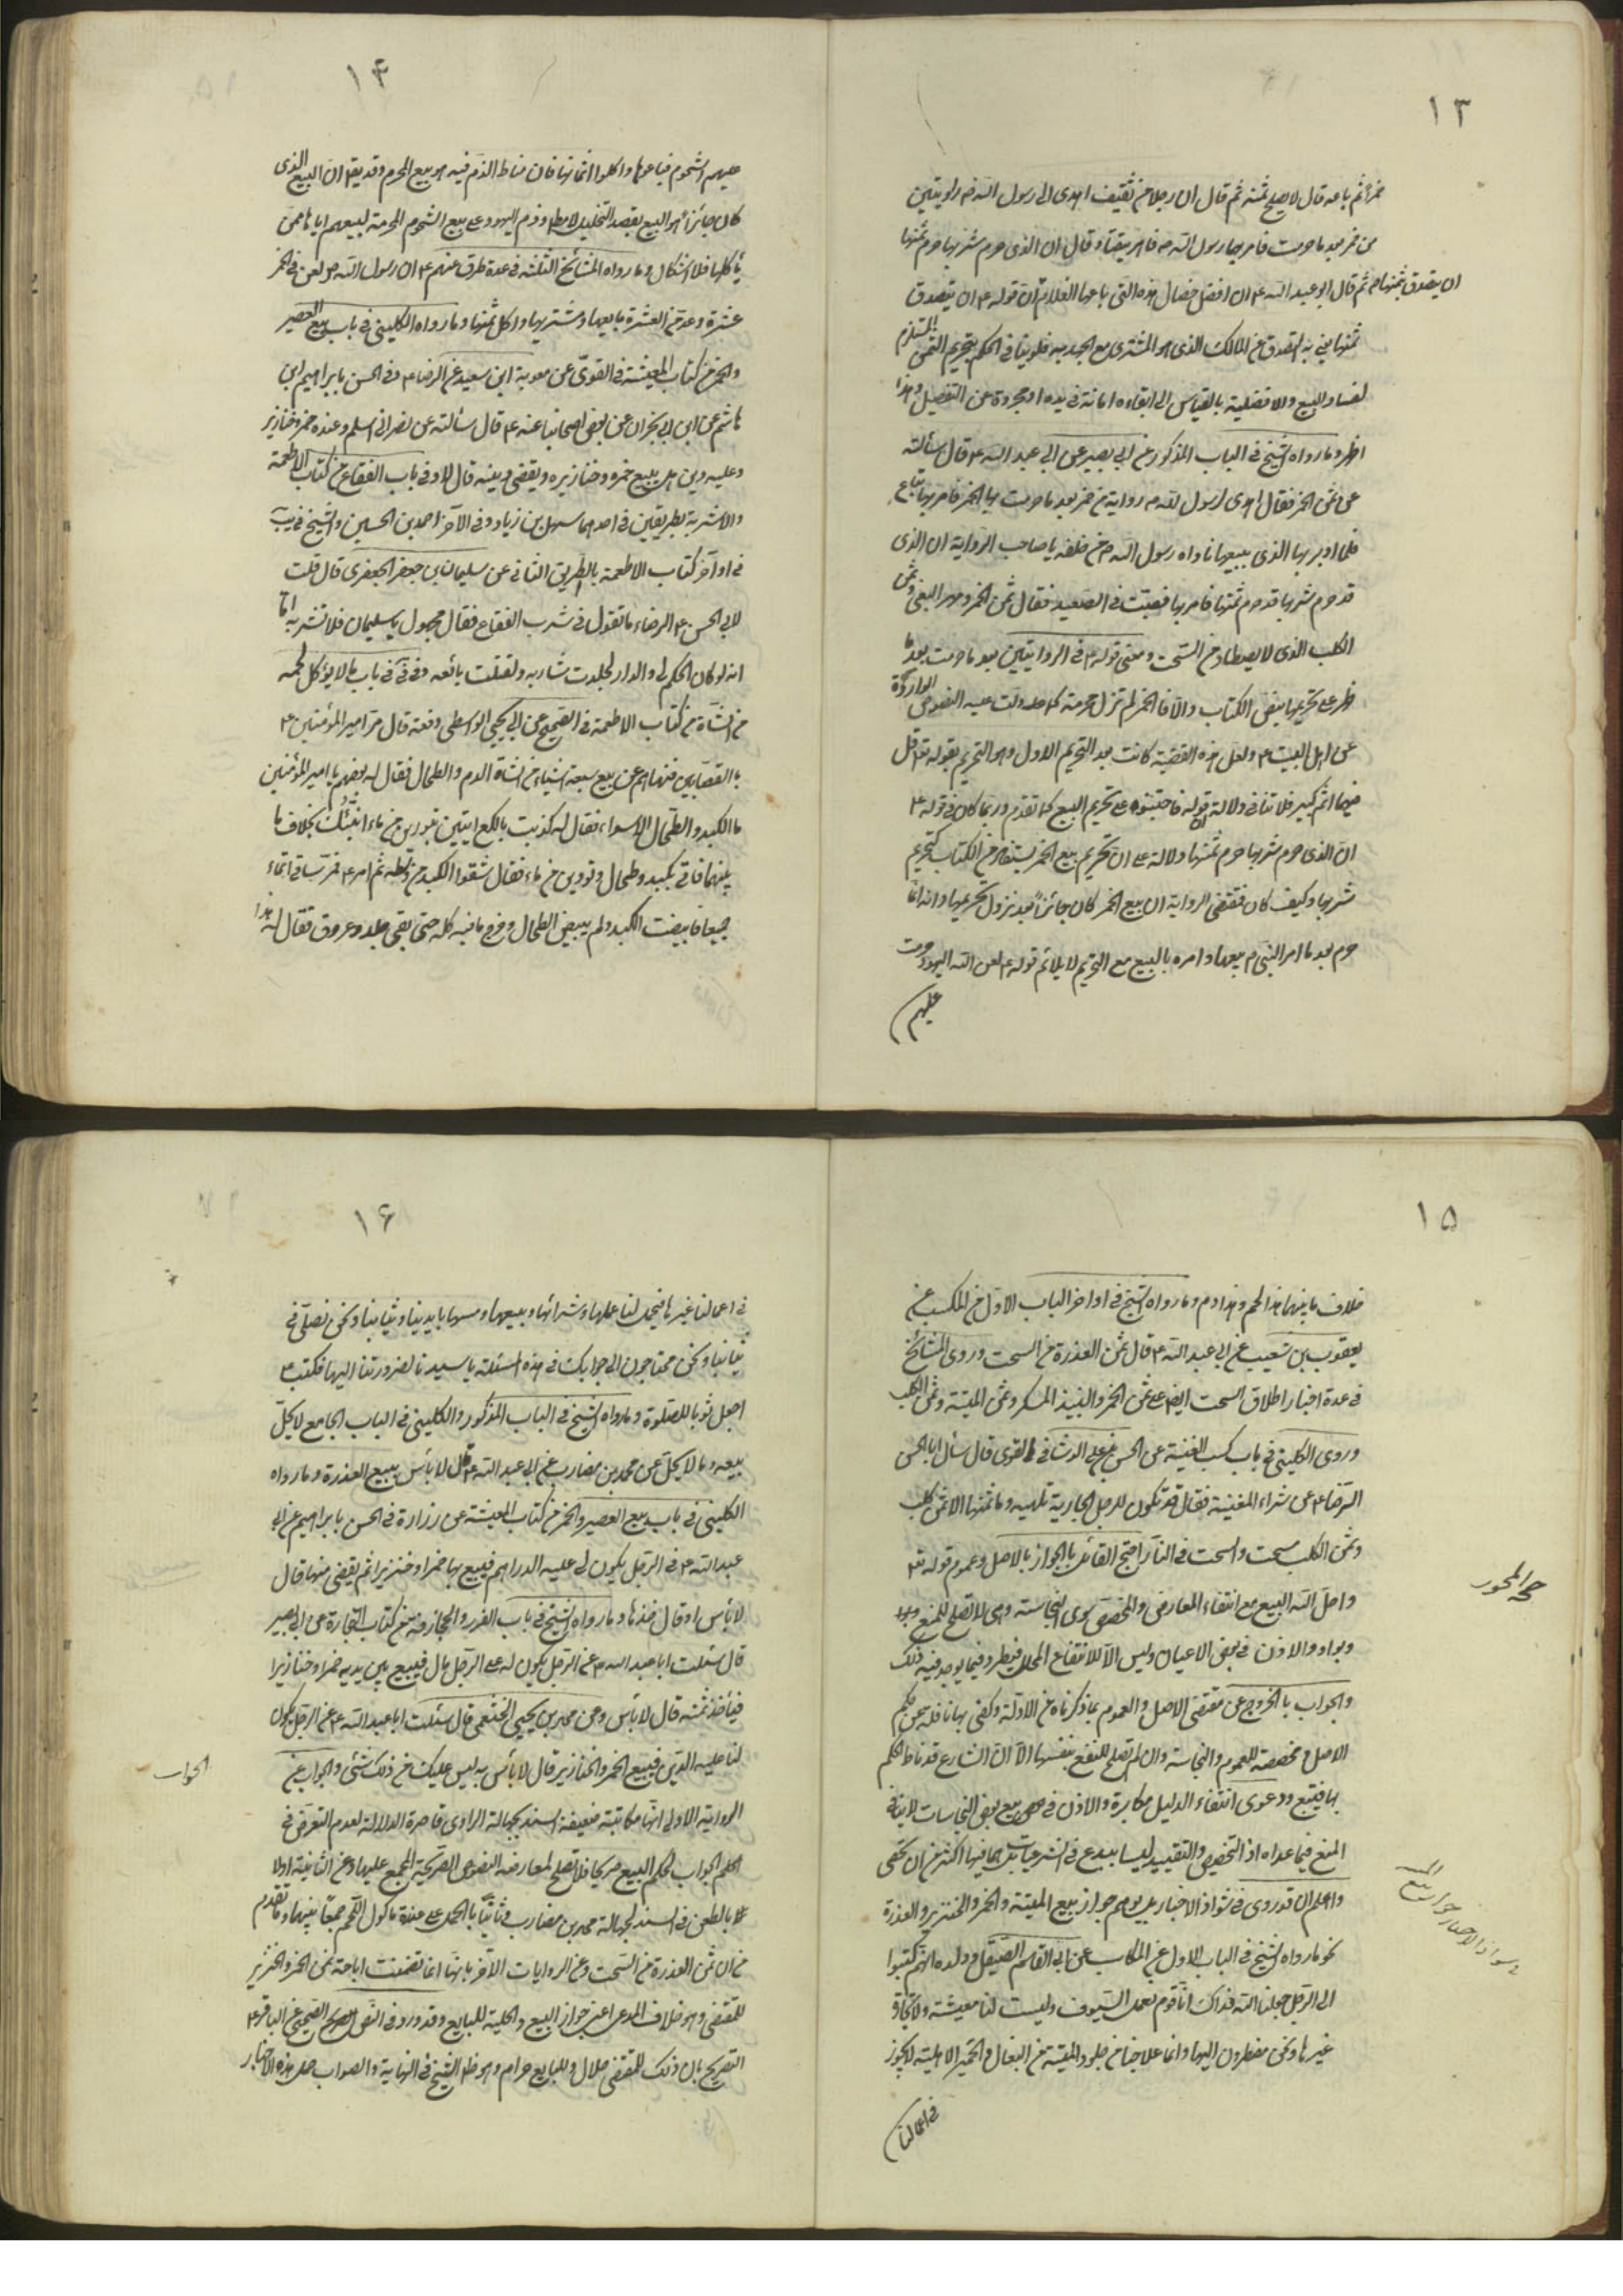 ١٣
خمرا ثم باعه قال لا يصلح ثمنه ثم قال ان رجلا من ثقيف اهدى الى رسول الله ص راويتين
من خمر بعد ما حرمت فامر بهما رسول الله ص فاهريقتا وقال ان الذى حرم شربها حرم ثمنها
ثم قال ابو عبد الله ع ان افضل خصال هذه التى باعها الغلام ان يتصدق بثمنها فان قوله ع ان يتصدق
بثمنها يعنى به التصدق عن المالك الذى هو المشترى مع الجهل به فلا ينافى الحكم بتحريم الثمن المستلزم
لفساد البيع والافضلية بالقياس الى ابقاءه امانة فى يده او مجردة عن التفضيل وهذا
اظهر وما رواه الشيخ فى الباب المذكور عن ابى بصير عن ابى عبد الله ع قال سألته
عن ثمن الخمر فقال اهدى لرسول الله ص رواية من خمر بعد ما حرمت الخمر فامر بها تباع
فلما ادبر بها الذى يبيعها ناداه رسول الله ص من خلفه يا صاحب الرواية ان الذى
قد حرم شربها قد حرم ثمنها فامر بها فصبت فى الصعيد فقال ثمن الخمر ومهر البغى وثمن
الكلب الذى لا يصطاد من السحت ومعنى قوله ع فى الروايتين بعد ما حرمت بعد ما
ظهر تحريمها بنص الكتاب والا فالخمر لم تزل محرمة كما دلت عليه النصوص الواردة
عن اهل البيت ع ولعل هذه القضية كانت بعد التحريم الاول وهو التحريم بقوله تعالى قل
فيهما اثم كبير فلا تنافى دلالة قوله فاجتنبوه على تحريم البيع كما تقدم وربما كان فى قوله ع
ان الذى حرم شربها حرم ثمنها دلالة على ان تحريم بيع الخمر يستفاد من الكتاب كتحريم
شربها وكيف كان فمقتضى الرواية ان بيع الخمر كان جائزا بعد نزول تحريمها وانه انما
حرم بعد ما امر النبى ص ببيعها وامره بالبيع مع التحريم لا يلائم قوله ع لعن الله اليهود حرمت
عليهم
١۴
عليهم الشحوم فباعوها واكلوا اثمانها فان مناط الذم فيه هو بيع المحرم وقد يقال ان البيع الذى
كان جائزا هو البيع بقصد التخليل لا مطلقا وذم اليهود على بيع الشحوم المحرمة لبيعهم اياها ممن
يأكلها فلا اشكال وما رواه المشائخ الثلثه فى عدة طرق عنهم ع ان رسول الله ص لعن فى الخمر
عشرة وعد من العشرة بايعها ومشتريها واكل ثمنها وما رواه الكلينى فى باب بيع العصير
والخمر من كتاب المعيشة فى القوى عن معوية ابن سعيد عن الرضا ع وفى الحسن بابراهيم ابن
هاشم عن ابن ابى نجران عن بعض اصحابنا عنه ع قال سألته عن نصرانى اسلم وعنده خمر وخنازير
وعليه دين هل يبيع خمره وخنازيره ويقضى دينه قال لا وفى باب الفقاع من كتاب الاطعمة
والاشربة بطريقين فى احدهما سهل بن زياد وفى الآخر احمد بن الحسين والشيخ فى يب
فى اواخر كتاب الاطعمة بالطريق الثانى عن سليمان بن جعفر الجعفرى قال قلت
لابى الحسن ع الرضا ما تقول فى شرب الفقاع فقال مجهول يا سليمان فلا تشربه اما
انه لو كان الحكم لى والدار لجلدت شاربه ولقتلت بائعه وفى فى باب ما لا يؤكل لحمه
من الشاة من كتاب الاطعمة فى الصحيح عن ابى يحيى الواسطى رفعه قال مر امير المؤمنين ع
بالقصابين فنهاهم عن بيع سبعة اشياء من الشاة الدم والطحال فقال له بعضهم يا امير المؤمنين
ما الكبد والطحال الا سواء فقال له كذبت يا لكع ايتنى بتورين من ماء انبئك بخلاف ما
بينهما فاتى بكبد وطحال وتورين من ماء فقال شقوا الكبد من وسطه ثم امر ع فمرسا فى الماء
جميعا فابيضت الكبد ولم يبيض الطحال وخرج ما فيه كله حتى بقى جلد وعروق فقال له هذا
١۵
خلاف ما بينهما هذا لحم وهذا دم وما رواه الشيخ فى اواخر الباب الاول من المكاسب عن
يعقوب بن شعيب عن ابى عبد الله ع قال ثمن العذرة من السحت وروى المشائخ
فى عدة اخبار اطلاق السحت ايضا على ثمن الخمر والنبيذ المسكر وثمن الميتة وثمن الكلب
وروى الكلينى فى باب كسب المغنية عن الحسن بن على الوشا فى القوى قال سأل ابا الحسن
الرضا ع عن شراء المغنية فقال قد تكون للرجل الجارية تلهيه وما ثمنها الا ثمن كلب
وثمن الكلب سحت والسحت فى النار احتج القائل بالجواز بالاصل وعموم قوله تع
واحل الله البيع مع انتفاء المعارض والمخصص سوى النجاسة وهى لا تصلح للمنع
وبورود الاذن فى بعض الاعيان وليس الا للانتفاع المحلل فيطرد فيما يوجد فيه ذلك
والجواب بالخروج عن مقتضى الاصل والعموم بما ذكرناه من الادلة وكفى بها ناقلة عن حكم
الاصل ومخصصة للعموم والنجاسة وان لم تصلح للمنع بنفسها الا ان الشارع قد ناط الحكم
بها فيتبع ودعوى انتفاء الدليل مكابرة والاذن فى بيع بعض النجاسات لا ينافى
المنع فيما عداه اذ التخصيص والتقييد ليسا ببدع فى الشرعيات بل هما فيها اكثر من ان تحصى
واعلم ان قد روى فى شواذ الاخبار ما يوهم جواز بيع الميتة والخمر والخنزير والعذرة
نحو ما رواه الشيخ فى الباب الاول من المكاسب عن ابى القاسم الصيقل وولده انهم كتبوا
الى الرجل جعلنا الله فداك انا قوم نعمل السيوف وليست لنا معيشة ولا تجارة
غيرها ونحن مضطرون اليها وانما علاجنا من جلود الميتة من البغال والحمير الاهلية لا يجوز
فى اعمالنا
١۶
فى اعمالنا غيرها فيحل لنا عملها وشرائها وبيعها ومسها بايدينا وثيابنا ونحن نصلى فى
ثيابنا ونحن محتاجون الى جوابك فى هذه المسئلة يا سيدنا لضرورتنا اليها فكتب ع
اجعل ثوبا للصلوة وما رواه الشيخ فى الباب المذكور والكلينى فى الباب الجامع لما يحل
بيعه وما لا يحل عن محمد بن مضارب عن ابى عبد الله ع قال لا بأس ببيع العذرة وما رواه
الكلينى فى باب بيع العصير والخمر من كتاب المعيشة عن زرارة فى الحسن بابراهيم عن ابى
عبد الله ع فى الرجل يكون لى عليه الدراهم فيبيع بها خمرا وخنزيرا ثم يقضى منها قال
لا بأس او قال خذها وما رواه الشيخ فى باب الغرر والمجازفة من كتاب التجارة عن ابى بصير
قال سئلت ابا عبد الله ع عن الرجل يكون له على الرجل مال فيبيع بين يديه خمرا وخنازيرا
فيأخذ ثمنه قال لا بأس وعن محمد بن يحيى الخثعمى قال سئلت ابا عبد الله ع عن الرجل يكون
لنا عليه الدين فيبيع الخمر والخنازير قال لا بأس به ليس عليك من ذلك شئى والجواب عن
الرواية الاولى انها مكاتبة ضعيفة السند بجهالة الراوى قاصرة الدلالة لعدم التعرض فى
الجواب لحكم البيع صريحا فلا تصلح لمعارضة النصوص الصريحة المجمع عليها وعن الثانية اولا
بالطعن فى السند لجهالة محمد بن مضارب وثانيا بالحمل على عذرة ماكول اللحم جمعا بينها وما تقدم
من ان ثمن العذرة من السحت وعن الروايات الآخر بانها انما تضمنت اباحة ثمن الخمر والخنزير
للمقتضى وهو خلاف المدعى اعنى جواز البيع والحلية للبايع وقد ورد فى النص الصحيح عن الباقر ع
التصريح بان ذلك للمقتضى حلال وللبايع حرام وهو ظ الشيخ فى النهاية والصواب حمل هذه الاخبار
الجواب